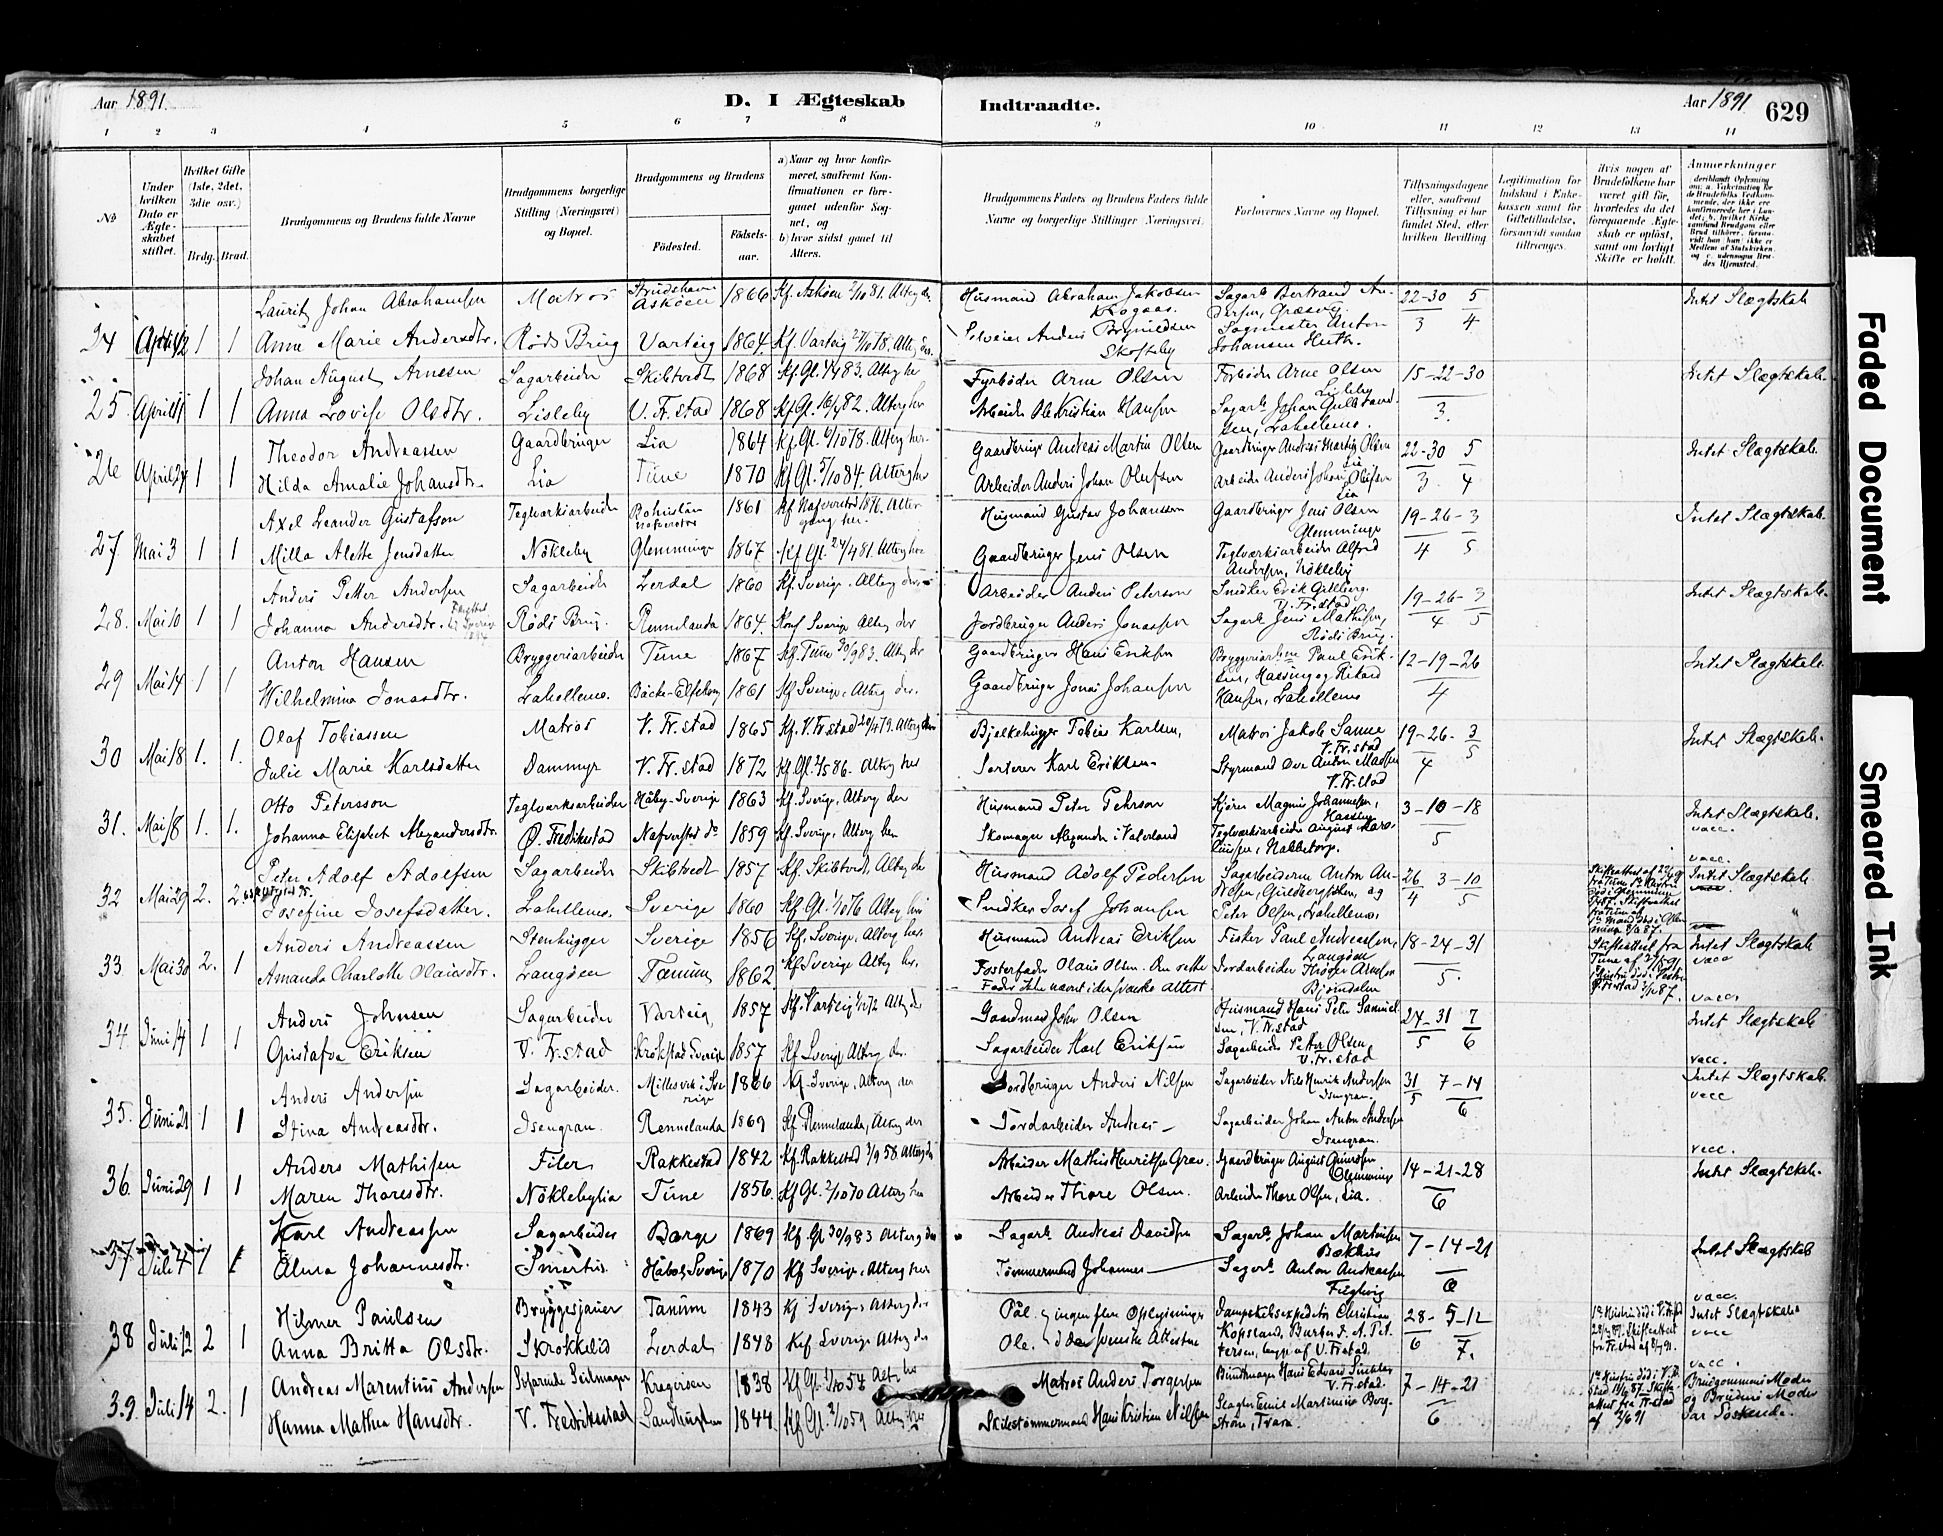 Aar 1891.
D. I Ægteskab
Indtraadte.
Aar 1891
629
1 2 3 4 5 6 7 8 9 10 11 12 13 14
No
Under hvilken Dato er Ægteskabet stiftet.
Hvilket Gifte (1ste, 2det, 3die osv.)
Brdg. Brud.
Brudgommens og Brudens fulde Navne
Brudgommens borgerlige Stilling (Næringsvei) og Bopæl.
Brudgommens og Brudens
Fødested.
Fødselsaar.
a) Naar og hvor konfirmeret, saafremt Konfirmationen er foregaaet udenfor Sognet, og
b) hvor sidst gaaet til Alters.
Brudgommens Faders og Brudens Faders fulde Navne og borgerlige Stillinger Næringsvei.
Forlovernes Navne og Bopæl.
Tillysningsdagene eller, saafremt Tillysning ei har fundet Sted, efter hvilken Bevilling
Legitimation for Indskud i Enkekassen samt for Giftetilladelse, forsaavidt saadan tiltrænges.
Hvis nogen af Brudefolkene har været gift før, hvorledes da det foregaaende Ægteskab er opløst, samt om lovligt Skifte er holdt.
Anmerkninger
24 April 12 1 1
Laurits Johan Abrahamsen Matros Askøen 1866 Kf. Askøen 2/10 81. Alterg. der. Husmand Abraham Jakobsen Krogaas. Sagarb. Bertrand Andersen, Græsvig. 22-30/3 5/4 Intet Slægtskab
Anne Marie Andersdtr. Røds Brug Varteig 1864. Kf. Varteig 27/10 78. Alterg. der. Selveier Anders Brynildsen Skofteby Sagmester Anton Johansen Huth.
25 April 1 1
Johan August Arnesen Sagarbeider Skibtvedt 1868 Kf. Gl. 83. Alterg her Fyrbøder Arne Olsen Fyrbøder Arne Olsen Lisleby 15-22-30/3. Intet Slægtskab.
Anna Lovise Olsdtr. Lisleby V. Fr.stad 1868 Kf. Gl. 16/4 82. Alterg her Arbeider Ole Kristian Hansen Sagarb. Johan Gulbrandsen, Lahellemo.
26 April 24 1 1
Theodor Andreassen Gaardbruger Lia 1864 Kf. Gl. 6/10 78. Alterg her. Gaardbruger Andreas Martin Olsen Gaardbruger Andreas Martin Olsen Lia 22-30/3 5/4 Intet Slægtskab.
Hilda Amalie Johansdtr. Lia Tune 1870 Kf Gl. 5/10 84. Alterg her Arbeider Anders Johan Olufsen Arbeider Anders Johan Olufsen Lia
27 Mai 3 1 1
Axel Leander Gustafson Teglværksarbeider Bohuslän Nafverstad 1861 Kf Nafverstad 1876. Altergang her. Husmand Gustav Johansson Gaardbruger Jens Olsen Glemminge 19-26/4 3/5 Intet Slægtskab.
Milla Alette Jensdatter Nøkleby Glemminge 1867 Kf Gl. 24/4 81. Alterg her Gaardbruger Jens Olsen Teglværksarbeider Alfred Andersen, Nøkleby
28. Mai 10 1 1
Anders Petter Andersen Sagarbeider Lerdal 1860 Kf. Sverige. Alterg der. Arbeider Anders Peterson Snedker Erik Gillberg. V. Fr.stad 19-26/4 3/5 Intet Slægtskab.
Johanna Andersdtr. Røds Brug. Rennelanda 1864. Konf Sverige Alterg der Jordbruger Anders Jonassen Sagarb. Jens Mathisen, Røds Brug.
29 Mai 14 1 1
Anton Hansen Bryggeriarbeider Tune 1867 Kf. Tune 30/9 83. Alterg der Gaardbruger Hans Eriksen Bryggeriarbeider Paul Eriksen, Hassing og Rikard Hansen, Lahellemo 12-19-26/4 Intet Slægtskab.
Wilhelmina Jonasdtr. Lahellemo. Bäcke-Elfsborg 1861 Kf Sverige, Alterg der. Gaardbruger Jonas Johansson
30 Mai 18 1. 1.
Olaf Tobiassen Matros V. Fr. stad 1865 Kf. V. Fr.stad 20/4 79. Alterg her Bjelkehugger Tobias Karlsen, Matros Jakob Sanne V. Fr. stad 19-26/4 3/5 Intet Slægtskab.
Julie Marie Karlsdatter Dammyr V. Fr. stad 1872 Kf. Gl. 2/5 86. Alterg her Sorterer Karl Eriksen Styrmand Ove Anton Madsen V. Fr.stad
31. Mai 18 1. 1.
Otto Petersson Teglværksarbeider Håby-Sverige 1863 Kf. Sverige, Alterg der Husmand Peter Pehrson Kjører Magnus Johannesen, Hassing 3-10-18/5 Intet Slægtskab. vacc.
Johanna Elisabet Alexandersdtr. Ø. Fredrikstad Nafverstad do 1859 Kf. Sverige, Alterg her Skomager Alexander i Valerland Teglværksarbeider August Karolinsen, Nabbetorp. vacc.
32 Mai 29 2. 2.
Peter Adolf Adolfsen Sagarbeider Skibtvedt 1857 Kf. Skibtvedt, Alterg der Husmand Adolf Pedersen Sagarbeiderne Anton Andresen, Gudbergslien, og Peter Olsen, Lahellemo, 26/4 3-10/5 Intet Slægtskab.
Josefine Josefsdatter. Lahellemo. Sverige 1860 Kf. Gl. 1/10 76 Alterg her Snedker Josef Johansen
33 Mai 30 2. 1
Anders Andreassen Stenhugger Sverige 1856 Kf. Sverige. Alterg her. Husmand Andreas Eriksen Fisker Paul Andreassen, Langøen 18-24-31/5. Skifteattest fra Tune af 27/5 91 Intet Slægtskab vacc
Amanda Charlotte Olausdtr. Langøen Tanum 1862 Kf Sverige Alterg her. Fosterfader Olaus Olsen. Den rette Fader ikke nævnt i den svenske Attest Jordarbeider Thiøger Arnesen Bjørndalen vacc.
34 Juni 14 1 1
Anders Johnsen Sagarbeider Varteig 1857 Kf. Varteig 72 Alterg der Gaardmand John Olsen Husmand Hans Peter Samuelsen, V. Fr. stad 24-31/5 7/6 Intet Slægtskab
Gustafva Eriksen V. Fr. stad Krokstad Sverige 1857 Kf Sverige Alterg der. Sagarbeider Karl Eriksen Sagarbeider Petter Olsen V. Fr. stad vacc.
35. Juni 21 1 1
Anders Andersen Sagarbeider. Millesvik i Sverige 1866 Kf. Sverige, Alterg der Jordbruger Anders Nilsen Sagarbeider Nils Henrik Andersen Isengran. 31/5 7-14/6 Intet Slægtskab. vacc
Stina Andreasdtr. Isengran. Rennelanda 1869 Kf Rennelanda, Alterg der Jordarbeider Andreas — Sagarbeider Johan Anton Andersen Isengran. vacc.
36. Juni 29 1 1
Anders Mathisen Filer Rakkestad 1842 Kf. Rakkestad 3/9 58 Alterg der Arbeider Mathis Henriksen Grav. Gaardbruger August Gundersen Glemminge 14-21-28/6 Intet Slægtskab.
Maren Thoresdtr. Nøklebylia Tune 1856. Kf Gl. 2/10 70 Alterg her Arbeider Thore Olsen. Arbeider Thore Olsen, Lia.
37 Juli 4 1 1
Karl Andreassen Sagarbeider Borge 1869 Kf Gl 30/9 83 Alterg der Sagarb. Andreas Davidsen Sagarb. Johan Martinsen Bakhus 7-14-21/6 Intet Slægtskab
Elina Johannesdtr. Smertu Håbol, Sverige 1870 Kf Sverige, Alterg her Tømmermand Johannes — Sagarb. Anton Andreassen vacc.
38 Juli 12 2 1
Hilmer Paulsen Bryggesjauer Tanum 1843 Kf Sverige, Alterg der Pål } ingen flere Oplysninger Dampskibsexpeditør Christian Kopsland, Burber F. A. Pettersen, begge af V. Fr.stad. 28/6 5-12/7. Intet Slægtskab vacc
Anna Britta Olsdtr. Krokkelia Lerdal 1848 Kf Sverige Alterg der Ole. } i den svenske Attesten vacc.
39. Juli 14 2. 1
Andreas Marentius Andersen Seilmager Kragerøen 1838 Kf Gl. 1/10 54 Alterg her Matros Anders Torgersen Bundtmager Hans Edvard V. Fr.stad 7-14-21/6 Brudgommens Moder og Brudens Moder var Søskende.
Hanna Mathea Hansdtr. V. Fredriksstad 1844. Kf Gl. 2/10 59 Alterg her Skibstømmermand Hans Kristian Nilsen Slagter Emil Martinius Bergstrøm, Trara
Faded Document
Smeared Ink